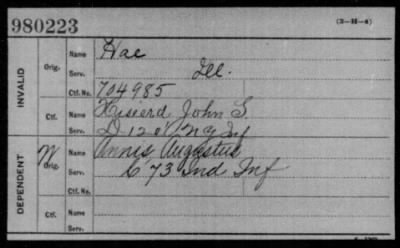 980223
(3-H-4)
INVALID
Orig.
Name Hae
Serv. Ill.
Ctf. No. 704985
Ctf.
Name John S.
Serv. D 120 N.Y. Inf
DEPENDENT
W
Orig.
Name Annis, Augustus
Serv. C 73 Ind Inf
Ctf. No.
Ctf.
Name
Serv.